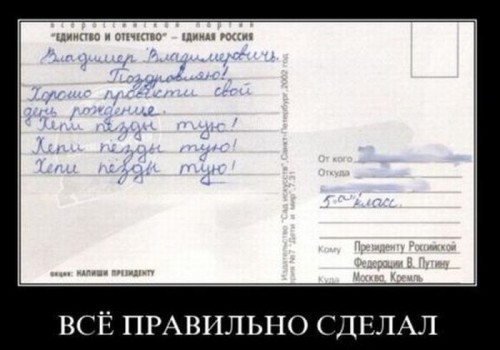 всероссийская партия
"ЕДИНСТВО И ОТЕЧЕСТВО" – ЕДИНАЯ РОССИЯ
Владимер Владимеровичь.
Поздровляю!
Хорошо провести свой
день рождение.
Хепи пёзды тую!
Хепи пёзды тую!
Хепи пёзды тую!
акция: НАПИШИ ПРЕЗИДЕНТУ
Издательство "Сад искусств", Санкт-Петербург, 2002 год
серия №7 "Дети и мир", 7.31
От кого
Откуда
5 "а" класс.
Кому Президенту Российской
Федерации В. Путину
Куда Москва, Кремль
ВСЁ ПРАВИЛЬНО СДЕЛАЛ